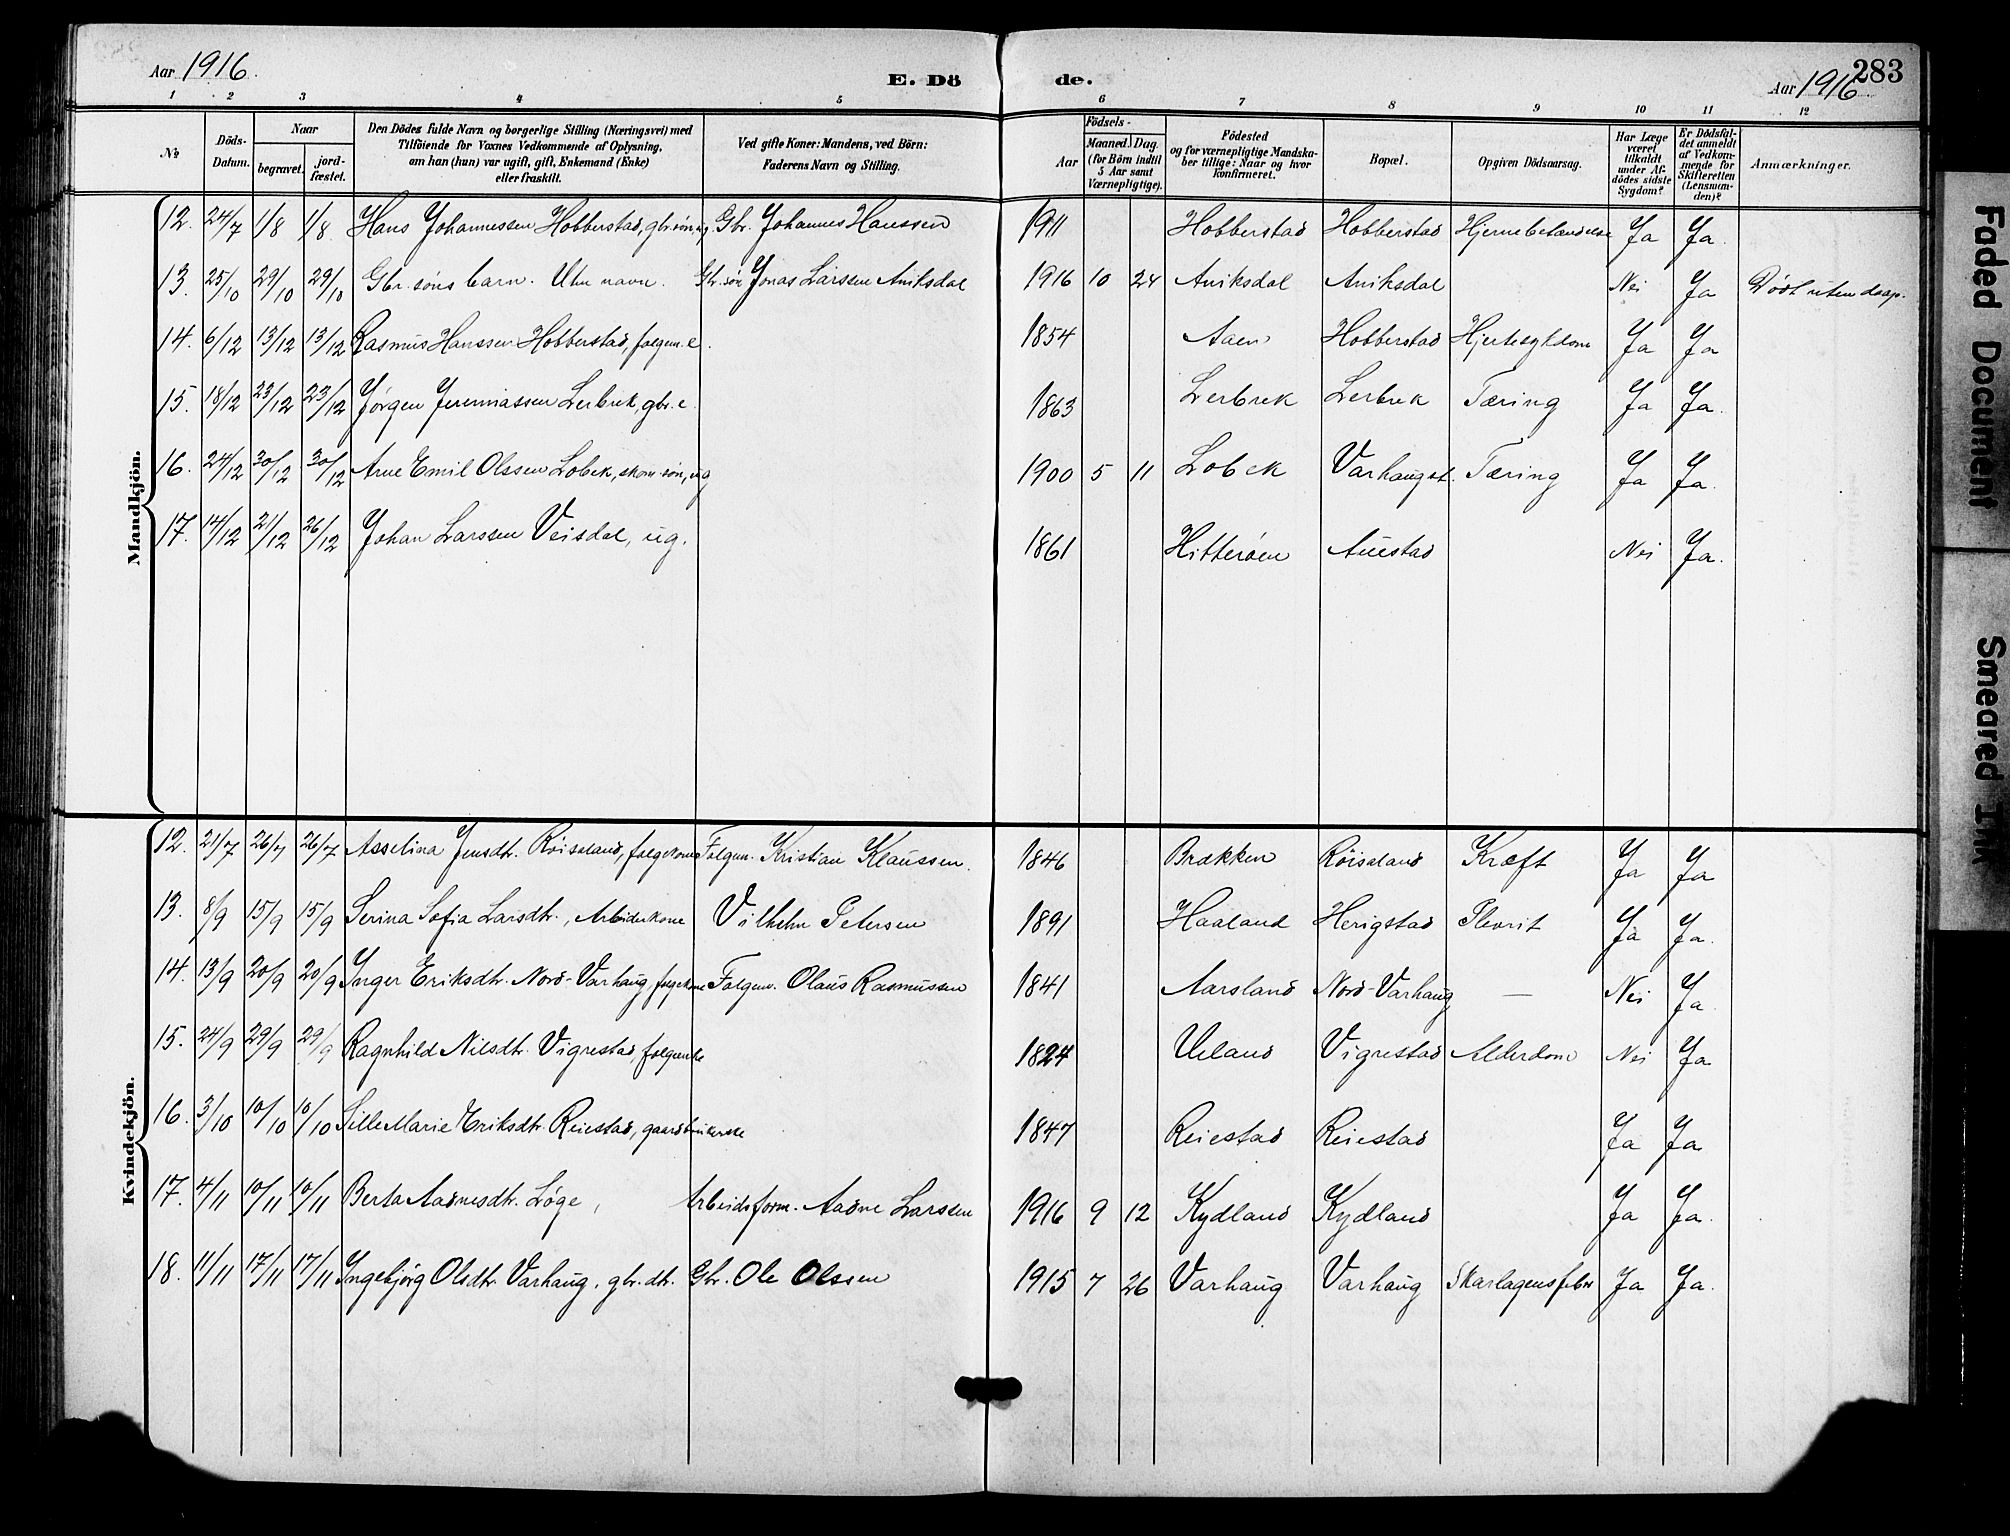 Aar 1916.
E. Dö de.
283
Aar 1916
1 2 3 4 5 6 7 8 9 10 11 12
№
Döds-Datum.
Naar
begravet.
jord-fæstet.
Den Dödes fulde Navn og borgerlige Stilling (Næringsvei) med
Tilföiende for Voxnes Vedkommende af Oplysning,
om han (hun) var ugift, gift, Enkemand (Enke)
eller fraskilt.
Ved gifte Koner: Mandens, ved Börn:
Faderens Navn og Stilling.
Födsels-
Aar
Maaned. Dag.
(for Börn indtil
5 Aar samt
Værnepligtige).
Födested
og for værnepligtige Mandska-
ber tillige: Naar og hvor
konfirmeret.
Bopæl.
Opgiven Dödsaarsag.
Har Læge
været
tilkaldt
under Af-
dödes sidste
Sygdom?
Er Dödsfal-
det anmeldt
af Vedkom-
mende for
Skifteretten
(Lensman-
den)?
Anmærkninger.
Mandkjön.
12. 24/7 1/8 1/8 Hans Johannessen Hobberstad, gbr.søn, ug. Gbr. Johannes Hanssen 1911 Hobberstad Hobberstad Hjernebetændelse Ja Ja.
13. 25/10 29/10 29/10 Gbr. søns barn. Uten navn. Gbr. søn Jonas Larssen Aniksdal 1916 10 24 Aniksdal Aniksdal Nei Ja Død uten daap.
14. 6/12 13/12 13/12 Rasmus Hanssen Hobberstad, folgem. e. 1854 Aaen Hobberstad Hjertesykdom Ja Ja
15. 18/12 23/12 23/12 Jörgen Jeremiassen Lerbrek, gbr. e. 1863 Lerbrek Lerbrek Tæring Ja Ja.
16. 24/12 30/12 30/12 Arne Emil Olssen Lobek, skom. søn, ug 1900 5 11 Lobek Varhaugst. Tæring Ja Ja.
17. 14/12 21/12 26/12 Johan Larssen Veisdal, ug. 1861 Hitterøen Auestad Nei Ja.
Kvindekjön.
12. 21/7 26/7 26/7 Asselina Jensdtr. Röiseland, folgekone Folgem. Kristian Klaussen. 1846 Brækken Röiseland Kræft Ja Ja
13. 8/9 15/9 15/9 Serina Sofia Larsdtr., Arbeiderkone Vilhelm Petersen 1891 Haaland Herigstad Plevrit Ja Ja.
14. 13/9 20/9 20/9 Inger Eriksdtr. Nord-Varhaug, folgekone Folgem. Olaus Rasmussen 1841 Aarsland Nord-Varhaug — Nei Ja.
15. 24/9 29/9 29/9 Ragnhild Nilsdtr. Vigrestad, folgenke 1824 Ueland Vigrestad Alderdom Nei Ja
16. 3/10 10/10 10/10 Sille Marie Eriksdtr. Reiestad, gaardbrukerske 1847 Reiestad Reiestad Ja Ja
17. 4/11 10/11 10/11 Berta Aadnesdtr. Löge, Arbeidsform. Aadne Larssen 1916 9 12 Kydland Kydland Ja Ja.
18. 11/11 17/11 17/11 Ingebjörg Olsdtr. Varhaug, gbr. dtr. Gbr. Ole Olssen 1915 7 26 Varhaug Varhaug Skarlagensfeber Ja Ja.
Faded Document
Smeared Ink